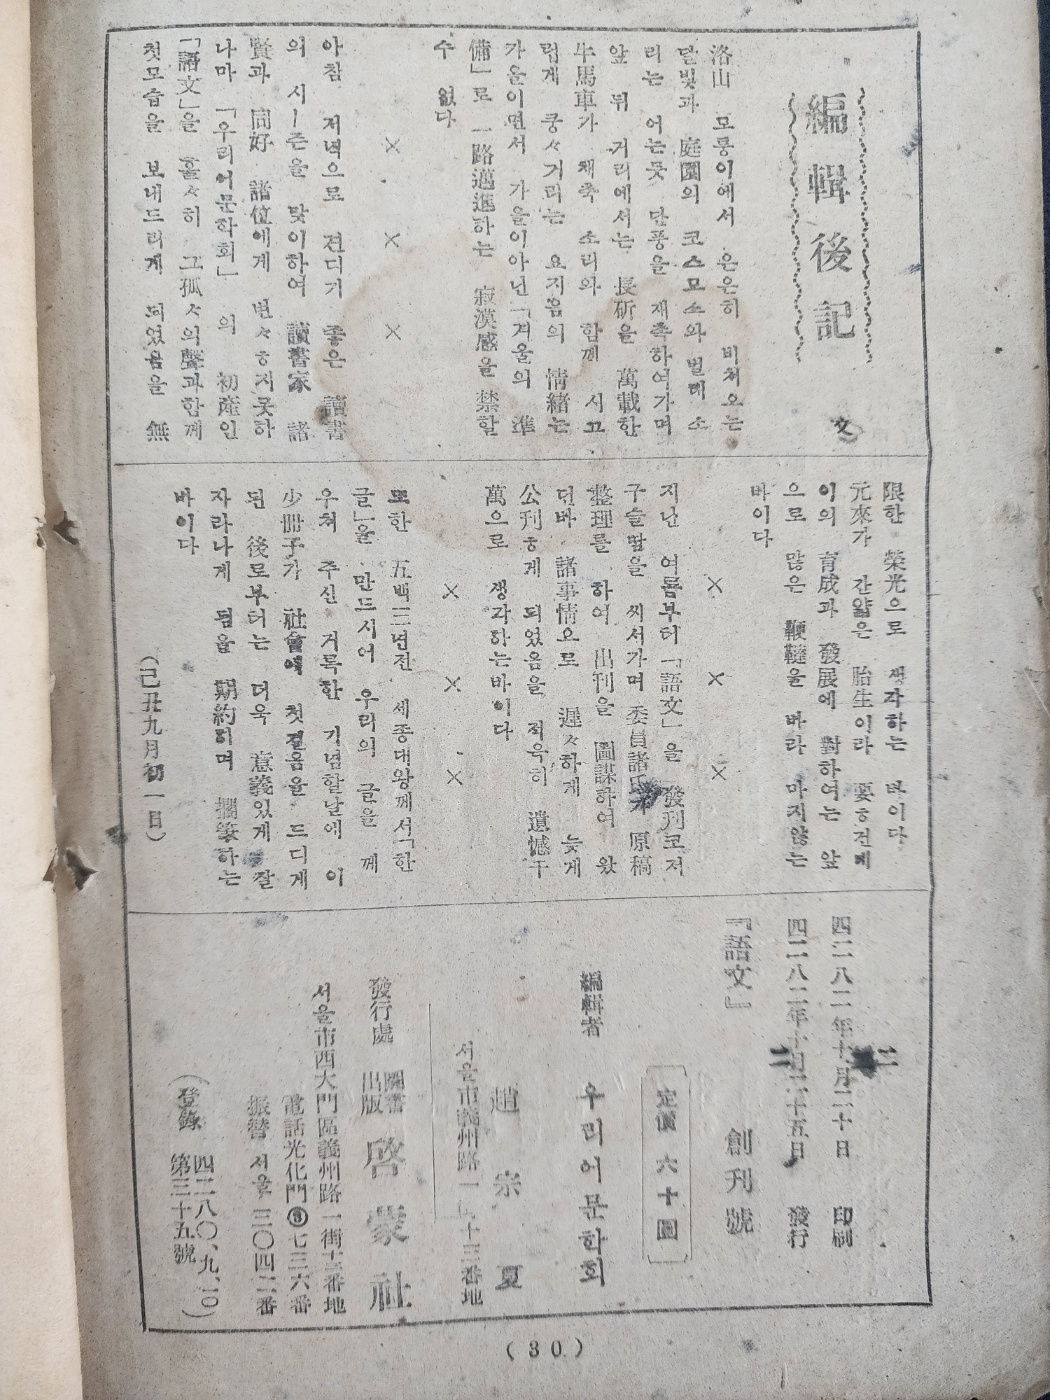 編輯後記
文
洛山 모릉이에서 은은히 비처오는
달빛과 庭園의 코스모스와 벌레 소
리는 어는듯 단풍을 재촉하여가며
앞 뒤 거리에서는 長斫을 萬載한
牛馬車가 채축 소리와 함께 시끄
럽게 쿵々거리는 요지음의 情緖는
가을이면서 가을이아닌「겨울의 準
備」로 一路邁進하는 寂漠感을 禁할
수 없다
× × ×
아침 저녁으로 견디기 좋은 讀書
의 시ー즌을 맞이하여 讀書家 諸
賢과 同好 諸位에게 변々ㅎ지못하
나마 「우리어문학회」 의 初産인
「語文」을 호々히 그孤々의聲과함께
첫모습을 보내드리게 되었음을 無
限한 榮光으로 생각하는 바이다
元來가 간얇은 胎生이라 要ㅎ건데
이의 育成과 發展에 對하여는 앞
으로 많은 鞭韃을 바라 마지않는
바이다
× × ×
지난 여름부터「語文」을 發刊코저
구슬땀을 씨서가며 委員諸氏가 原稿
整理를 하여 出刊을 圖謀하여 왔
던바 諸事情으로 遲々하게 늦게
公刊ㅎ게 되었음을 적윽히 遺憾千
萬으로 생각하는바이다
× × ×
또한 五백三년전 세종대왕께서「한
글」을 만드시어 우리의 글을 깨
우처 주신 거룩한 기념할날에 이
少冊子가 社會에 첫걸음을 드디게
된 後로부터는 더욱 意義있게 잘
자라나게 됨을 期約하며 擱筆하는
바이다
(己丑九月初一日)
四二八二年十月二十日 印刷
四二八二年十月二十五日 發行
『語文』 創刊號
定價 六十圓
編輯者 우리어문학회
趙宗夏
서울市義州路一街十三番地
發行處 圖書出版 啓蒙社
서울市西大門區義州路一街十三番地
電話光化門③七三六番
振替 서울 三〇四二番
(登錄 四二八〇、九、二〇 第三十五號)
(30)